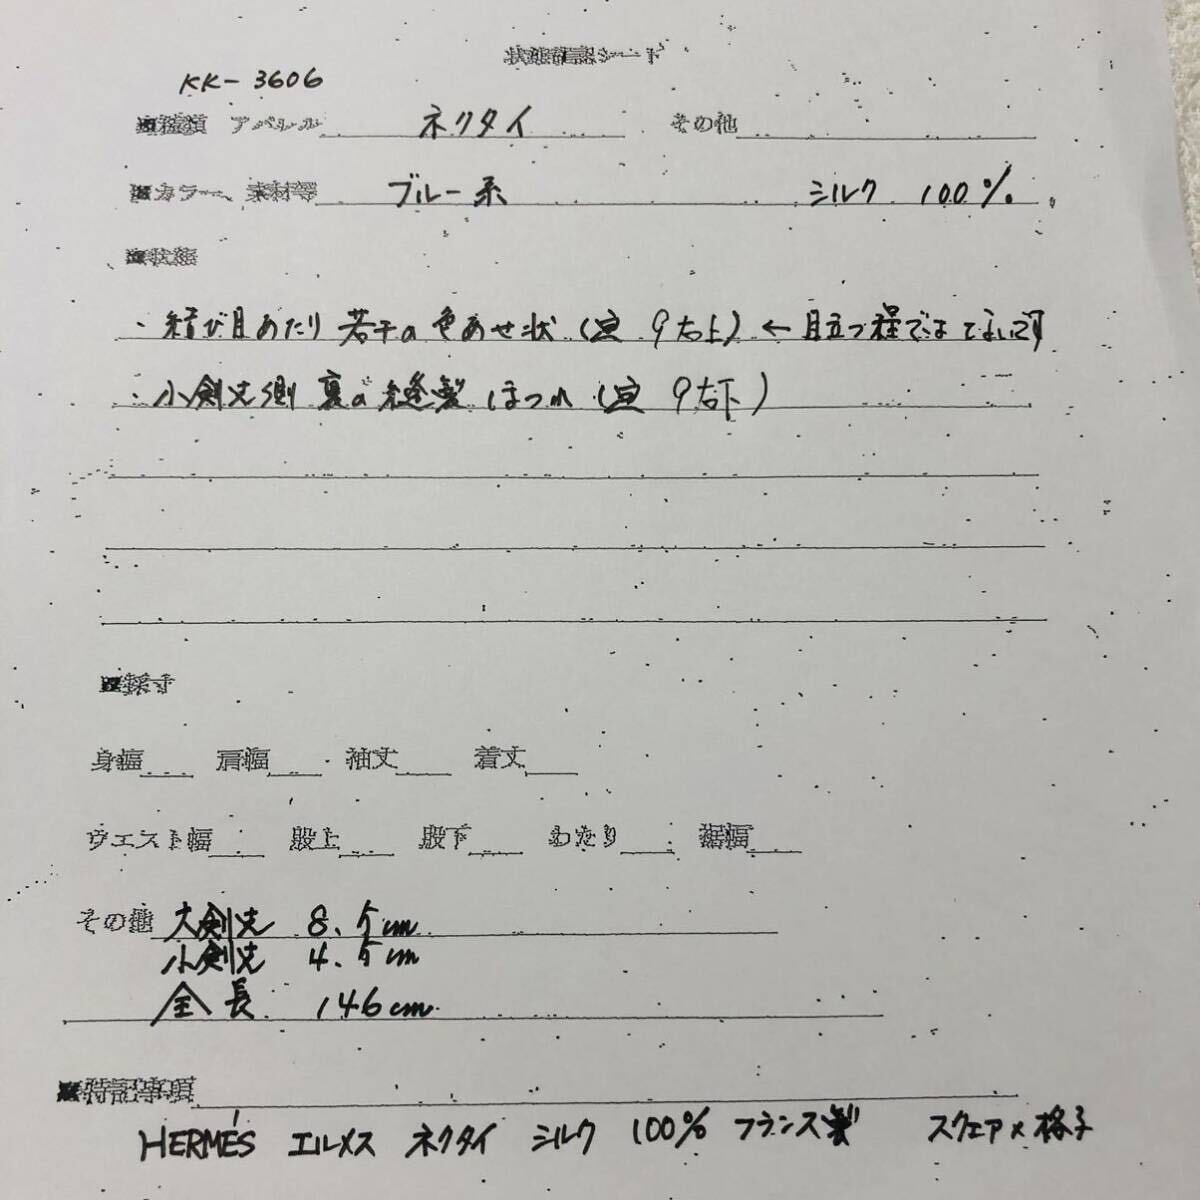 状態確認シート
KK-3606
■種類 アパレル ネクタイ その他
■カラー、素材等 ブルー系 シルク 100%
■状態
・結び目あたり 若干の色あせ状 ( 9右上) ← 目立つ程では
・小剣先側 裏の縫製 ほつれ ( 9右下)
■採寸
身幅 肩幅 袖丈 着丈
ウエスト幅 股上 股下 わたり 裾幅
その他 大剣先 8.5cm
小剣先 4.5cm
全長 146cm
■特記事項
HERMÉS エルメス ネクタイ シルク 100% フランス製 スクエア×格子